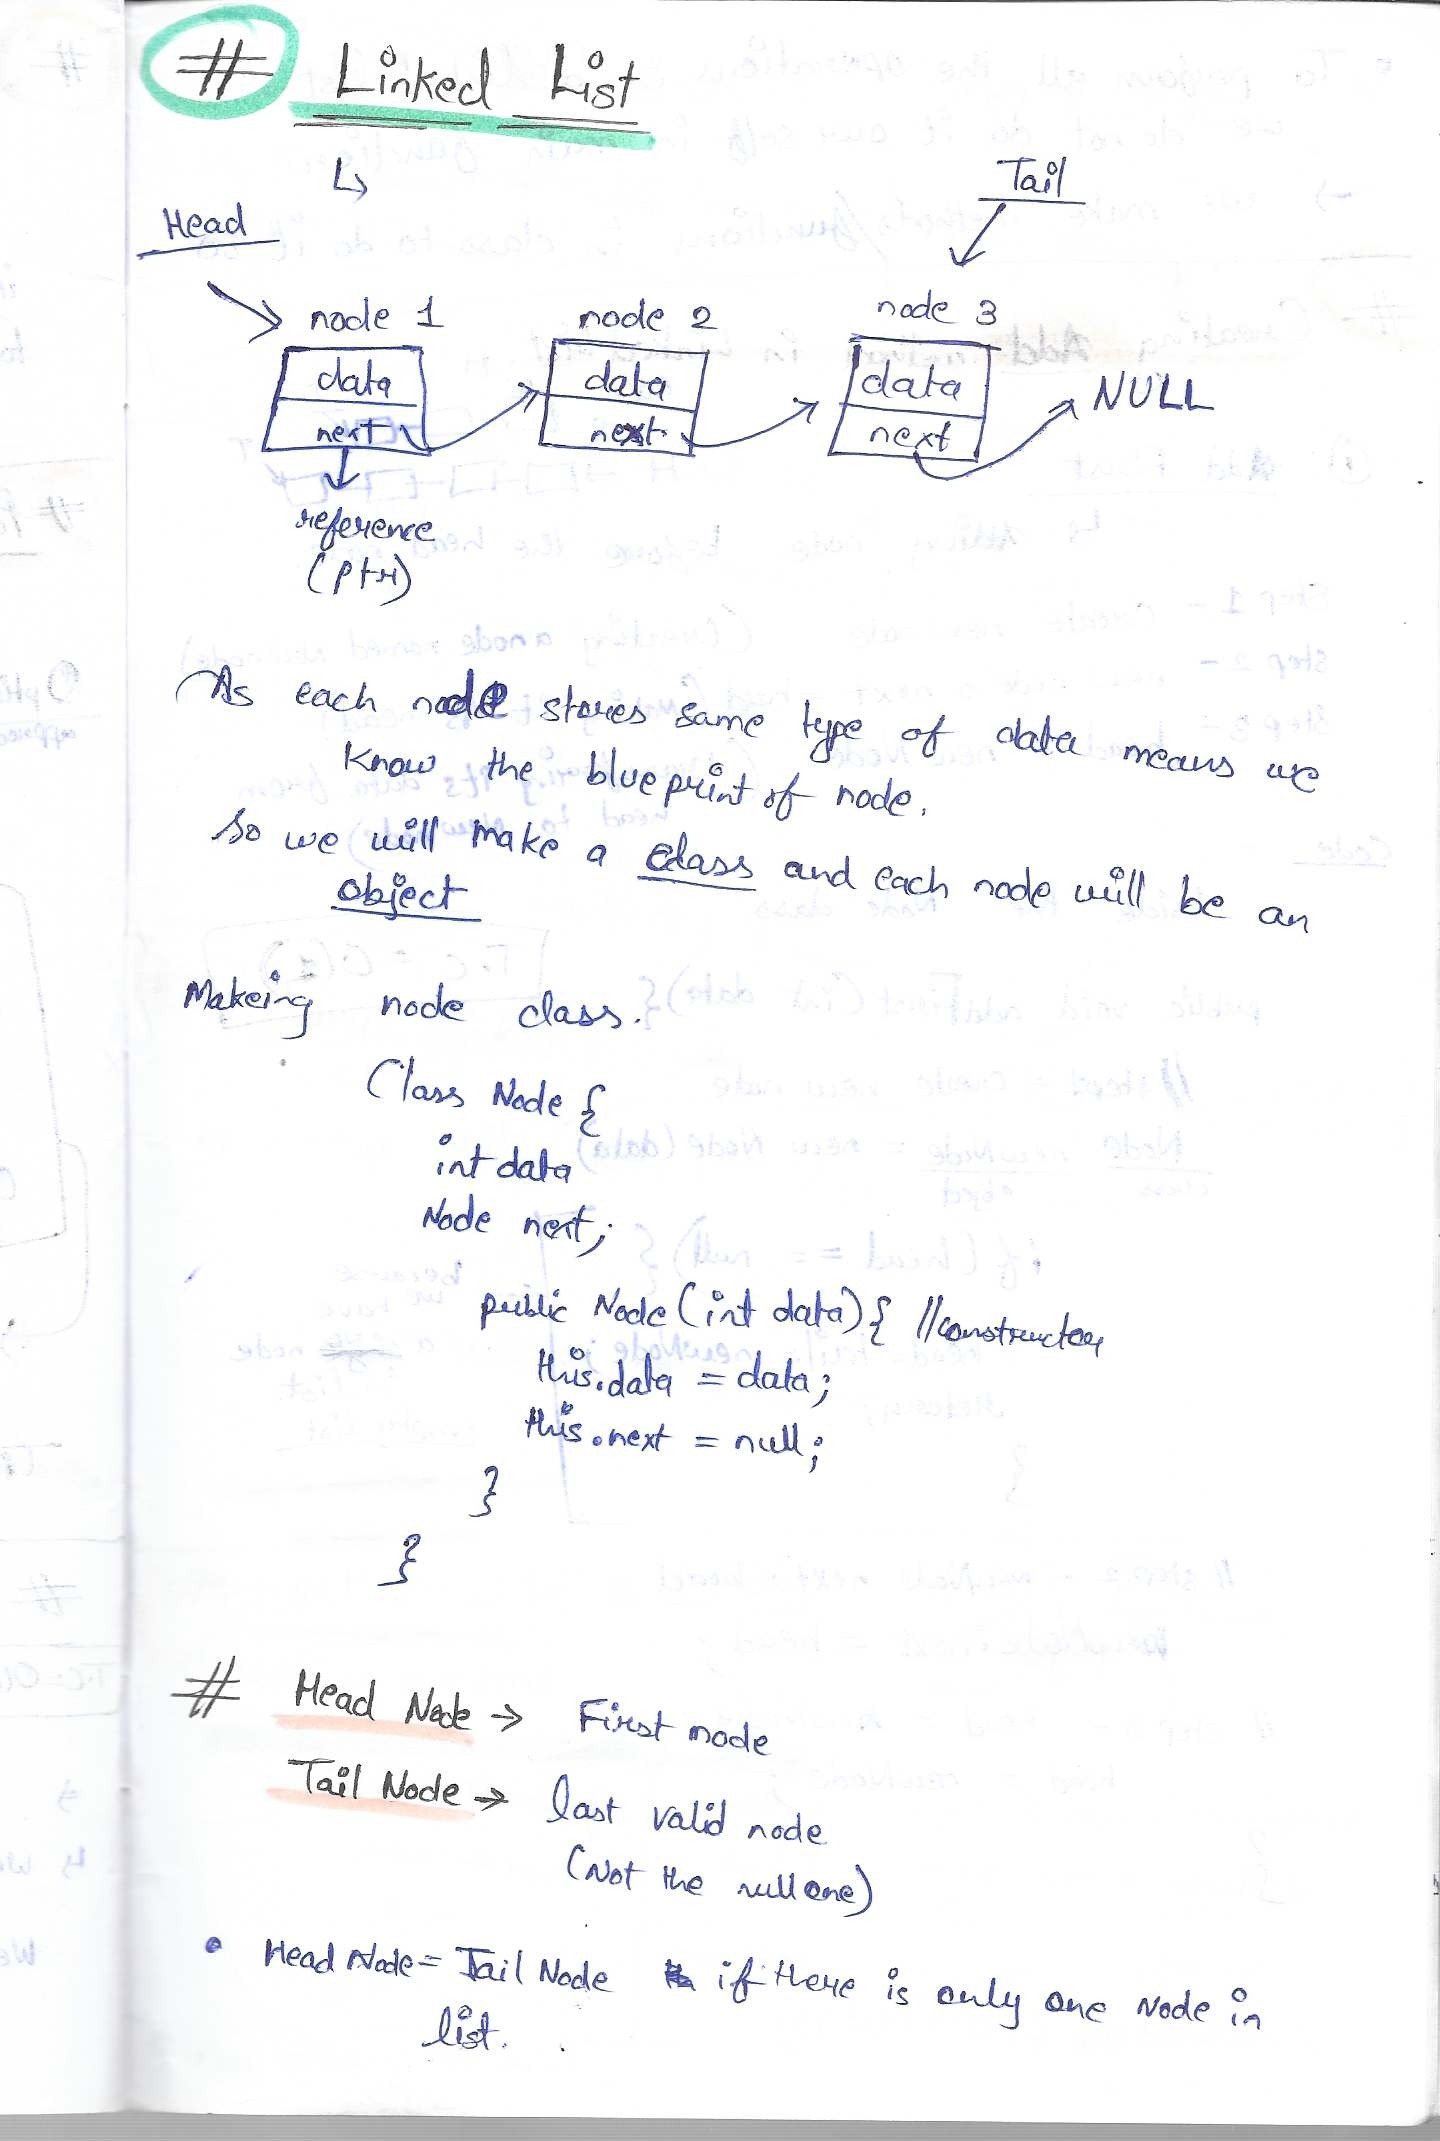 # Linked List
Head
Tail
node 1 node 2 node 3
data data data
next next next
NULL
reference
(ptr)
As each node stores same type of data means we
Know the blueprint of node.
So we will make a class and each node will be an
object
Makeing node class.
Class Node {
int data
Node next;
public Node (int data) { //constructor
this.data = data;
this.next = null;
}
}
# Head Node → First node
Tail Node → last valid node
(Not the null one)
• Head Node = Tail Node if there is only one Node in
list.